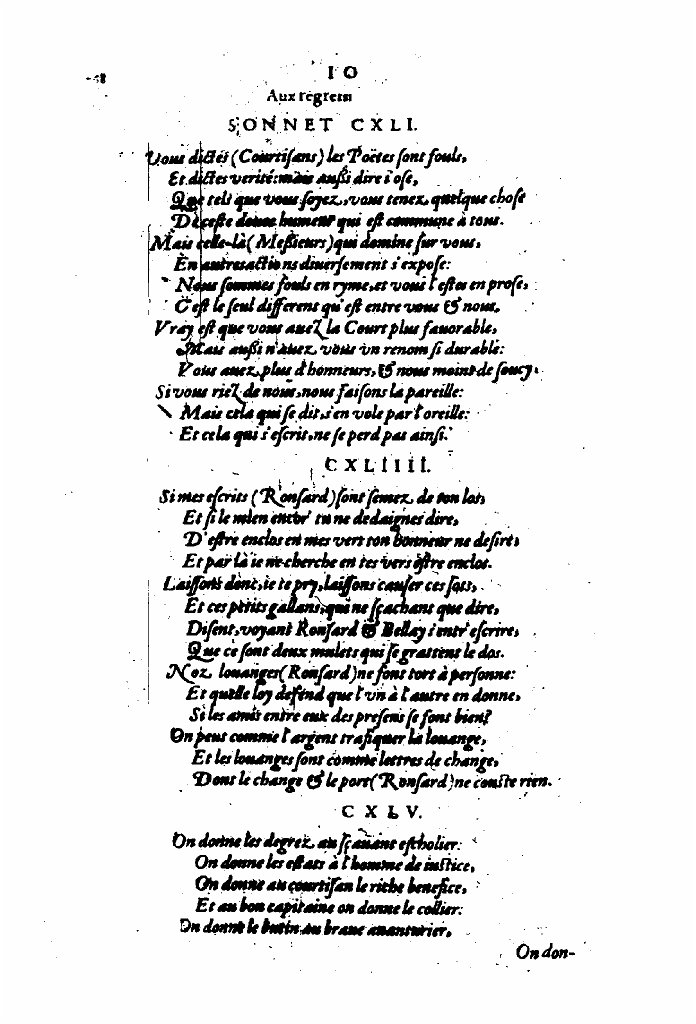 I O
Aux regrets
SONNET CXLI.
Vous dictes (Courtisans) les Poëtes sont fouls,
Et dictes verité: mais aussi dire i'ose,
Que tels que vous soyez, vous tenez quelque chose
De ceste douce humeur qui est commune à tous.
Mais celle-là (Messieurs) qui domine sur vous,
En autres actions diuersement s'expose:
Nous sommes fouls en ryme, et vous l'estes en prose,
C'est le seul different qu'est entre vous & nous.
Vray est que vous auez la Court plus fauorable,
Mais aussi n'auez vous vn renom si durable:
Vous auez plus d'honneurs, & nous moins de soucy.
Si vous riez de nous, nous faisons la pareille:
Mais cela qui se dit, s'en vole par l'oreille:
Et cela qui s'escrit, ne se perd pas ainsi.
CXLIIII.
Si mes escrits (Ronsard) sont semez de ton los,
Et si le mien encor' tu ne dedaignes dire,
D'estre enclos en mes vers ton honneur ne desire,
Et par là ie ne cherche en tes vers estre enclos.
Laissons donc, ie te pry, laissons causer ces sots,
Et ces petits gallans, qui ne sçachant que dire,
Disent, voyant Ronsard & Bellay s'entr'escrire,
Que ce sont deux mulets qui se grattent le dos.
Noz louanges (Ronsard) ne font tort à personne:
Et quelle loy defend que l'vn à l'autre en donne,
Si les amis entre eux des presens se font bien?
On peut comme l'argent trafiquer la louange,
Et les louanges sont comme lettres de change,
Dont le change & le port (Ronsard) ne couste rien.
CXLV.
On donne les degrez au sçauant escholier:
On donne les estats à l'homme de iustice,
On donne au courtisan le riche benefice,
Et au bon capitaine on donne le collier:
On donne le butin au braue auanturier,
On don-